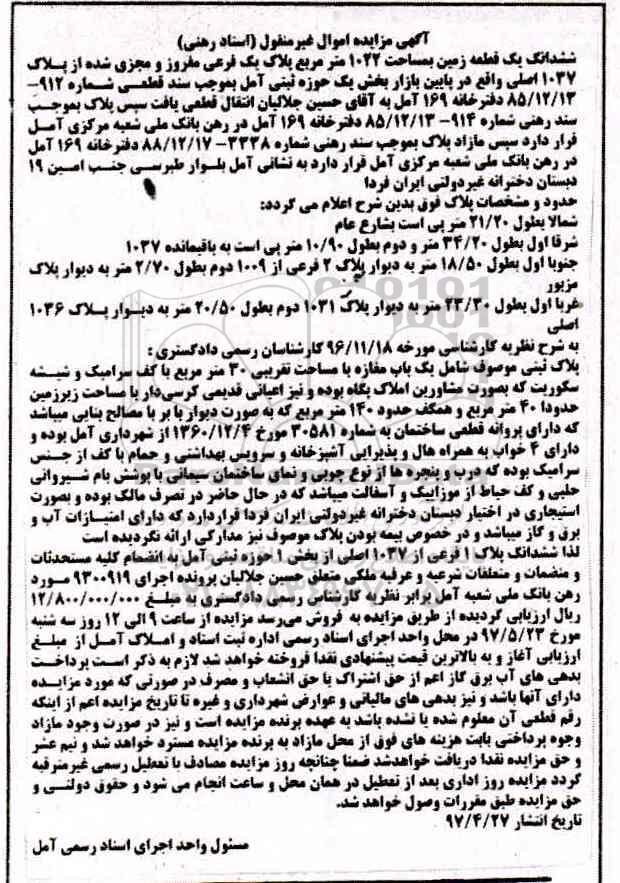 آگهی مزایده اموال غیرمنقول (اسناد رهنی)
ششدانگ یک قطعه زمین بمساحت ۱۰۲۲ متر مربع پلاک یک فرعی مفروز و مجزی شده از پلاک
۱۰۳۷ اصلی واقع در پایین بازار بخش یک حوزه ثبتی آمل بموجب سند قطعی شماره ۹۱۲–
۸۵/۱۲/۱۳ دفترخانه ۱۶۹ آمل به آقای حسین جلالیان انتقال قطعی یافت سپس پلاک بموجب
سند رهنی شماره ۹۱۴– ۸۵/۱۲/۱۳ دفترخانه ۱۶۹ آمل در رهن بانک ملی شعبه مرکزی آمل
قرار دارد سپس مازاد پلاک بموجب سند رهنی شماره ۳۳۳۸– ۸۸/۱۲/۱۷ دفترخانه ۱۶۹ آمل
در رهن بانک ملی شعبه مرکزی آمل قرار دارد به نشانی آمل بلوار طبرسی جنب امین ۱۹
دبستان دخترانه غیردولتی ایران فردا
حدود و مشخصات پلاک فوق بدین شرح اعلام می گردد:
شمالا بطول ۲۱/۲۰ متر پی است بشارع عام
شرقا اول بطول ۳۴/۲۰ متر و دوم بطول ۱۰/۹۰ متر پی است به باقیمانده ۱۰۳۷
جنوبا اول بطول ۱۸/۵۰ متر به دیوار پلاک ۲ فرعی از ۱۰۰۹ دوم بطول ۲/۷۰ متر به دیوار پلاک
مزبور
غربا اول بطول ۲۳/۳۰ متر به دیوار پلاک ۱۰۳۱ دوم بطول ۲۰/۵۰ متر به دیوار پلاک ۱۰۳۶
اصلی
به شرح نظریه کارشناسی مورخه ۹۶/۱۱/۱۸ کارشناسان رسمی دادگستری :
پلاک ثبتی موصوف شامل یک باب مغازه با مساحت تقریبی ۳۰ متر مربع با کف سرامیک و شیشه
سکوریت که بصورت مشاورین املاک پگاه بوده و نیز اعیانی قدیمی کرسی‌دار با مساحت زیرزمین
حدودا ۴۰ متر مربع و همکف حدود ۱۴۰ متر مربع که به صورت دیوار با بر با مصالح بنایی میباشد
که دارای پروانه قطعی ساختمان به شماره ۳۰۵۸۱ مورخ ۱۳۶۰/۱۲/۴ از شهرداری آمل بوده و
دارای ۴ خواب به همراه هال و پذیرایی آشپزخانه و سرویس بهداشتی و حمام با کف از جنس
سرامیک بوده که درب و پنجره ها از نوع چوبی و نمای ساختمان سیمانی با پوشش بام شیروانی
حلبی و کف حیاط از موزاییک و آسفالت میباشد که در حال حاضر در تصرف مالک بوده و بصورت
استیجاری در اختیار دبستان دخترانه غیردولتی ایران فردا قراردارد که دارای امتیازات آب و
برق و گاز میباشد و در خصوص بیمه بودن پلاک موصوف نیز مدارکی ارائه نگردیده است
لذا ششدانگ پلاک ۱ فرعی از ۱۰۳۷ اصلی از بخش ۱ حوزه ثبتی آمل به انضمام کلیه مستحدثات
و منضمات و متعلقات شرعیه و عرفیه ملکی متعلق حسین جلالیان پرونده اجرای ۹۳۰۰۹۱۹ مورد
رهن بانک ملی شعبه آمل برابر نظریه کارشناس رسمی دادگستری به مبلغ ۱۲/۸۰۰/۰۰۰/۰۰۰
ریال ارزیابی گردیده از طریق مزایده به فروش می‌رسد مزایده از ساعت ۹ الی ۱۲ روز سه شنبه
مورخ ۹۷/۵/۲۳ در محل واحد اجرای اسناد رسمی اداره ثبت اسناد و املاک آمل از مبلغ
ارزیابی آغاز و به بالاترین قیمت پیشنهادی نقدا فروخته خواهد شد لازم به ذکر است پرداخت
بدهی های آب برق گاز اعم از حق اشتراک یا حق انشعاب و مصرف در صورتی که مورد مزایده
دارای آنها باشد و نیز بدهی های مالیاتی و عوارض شهرداری و غیره تا تاریخ مزایده اعم از اینکه
رقم قطعی آن معلوم شده یا نشده باشد به عهده برنده مزایده است و نیز در صورت وجود مازاد
وجوه پرداختی بابت هزینه های فوق از محل مازاد به برنده مزایده مسترد خواهد شد و نیم عشر
و حق مزایده نقدا دریافت خواهدشد ضمنا چنانچه روز مزایده مصادف با تعطیل رسمی غیرمترقبه
گردد مزایده روز اداری بعد از تعطیل در همان محل و ساعت انجام می شود و حقوق دولتی و
حق مزایده طبق مقررات وصول خواهد شد.
تاریخ انتشار ۹۷/۴/۲۷
مسئول واحد اجرای اسناد رسمی آمل